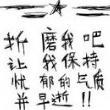 折磨我吧
让我保持
忧郁的气质
并早逝!!